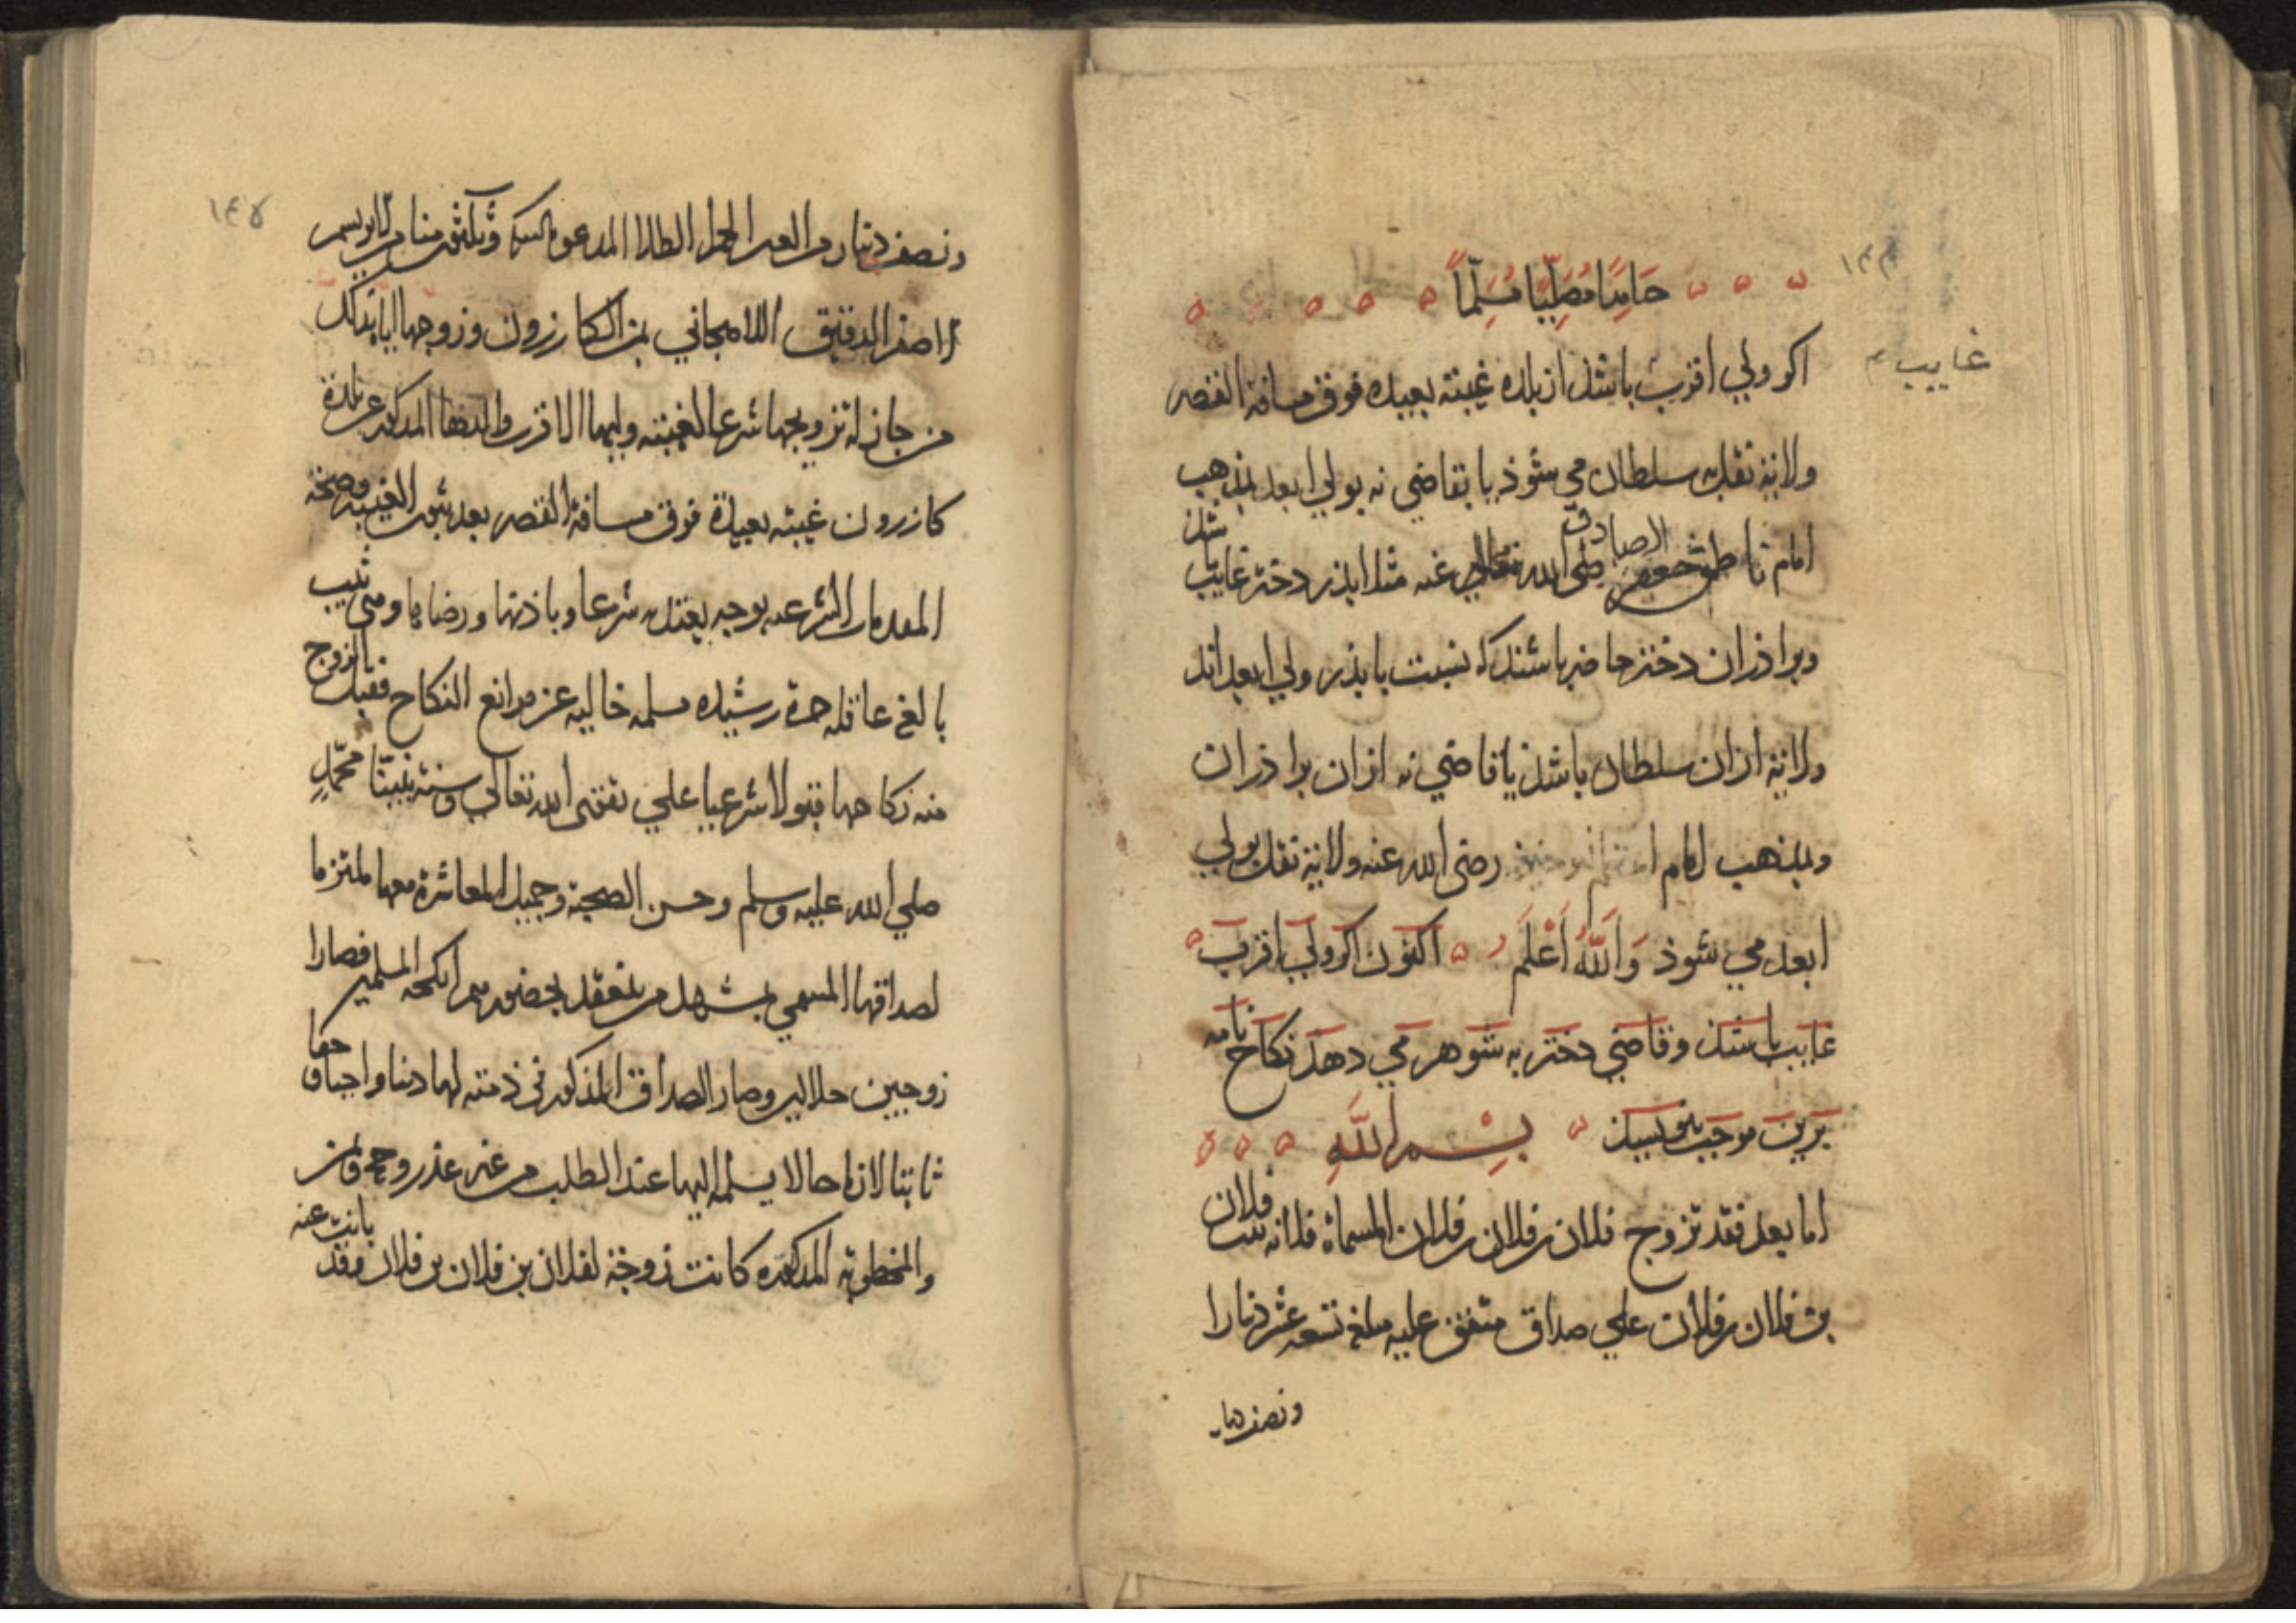 حَامِدًا مُصَلِّيًا مُسَلِّمًا
غايب
اكر ولي اقرب باشد از بلده غيبته بعيده فوق مسافة القصر
ولاية نقل به سلطان مي شوذ يا بقاضي نه بولي ابعد بمذهب
امام الصادق رضي الله تعالى عنه مثلا پذر دختر غايب باشد
وبراذران دختر حاضر باشند كه نسبت با پذر ولي ابعد اند
ولاية ازان سلطان باشد يا قاضي نه ازان براذران
وبمذهب امام رضى الله عنه ولاية نقل بولي
ابعد مي شوذ وَاَللّٰهُ اَعْلَم اكنون اكر ولي اقرب
غايب باشد وقاضي دختر به شوهر مي دهد نكاح نامه
برين موجب بنويسند بِسْمِ اللَّهِ
اما بعد فقد تزوج فلان بن فلان بن فلان المسماة فلانه بنت فلان
بن فلان بن فلان علي صداق متفق عليه مبلغ تسعه عشر دينارا
ونصف دينار
ونصف دينار من الطلا المدعو وثلثي منا من الابريسم
الاصفر الدقيق اللامجاني بمن الكازرون وزوجها اياه بذلك
من جاز له تزويجها شرعا لغيبته وليها الاقرب والدها المذكور عن بلدة
كازرون غيبته بعيدة فوق مسافة القصر بعد ثبوت الغيبه وصحة
المقدمات الشرعيه بوجه يعتد به شرعا وباذنها ورضاها وهي ثيب
بالغ عاقله حرة رشيده مسلمه خاليه عن موانع النكاح فقبل الزوج
منه نكاحها قبولا شرعيا علي تقوى الله تعالي وسنة نبيّنا محمّدٍ
صلي الله عليه وسلم وحسن الصحبة وجميل المعاشرة معها ملتزما
لصداقها المسمي بمشهد من ينعقد بحضورهم انكحة المسلمين فصارا
زوجين حلالين وصار الصداق المذكور في ذمته لها دينا واجبا وحقا
ثابتا لازما حالا يسلمه اليها عند الطلب من غير عذر وحجة
والمخطوبة المذكوره كانت زوجة لفلان بن فلان بن فلان وقد بانت عنه